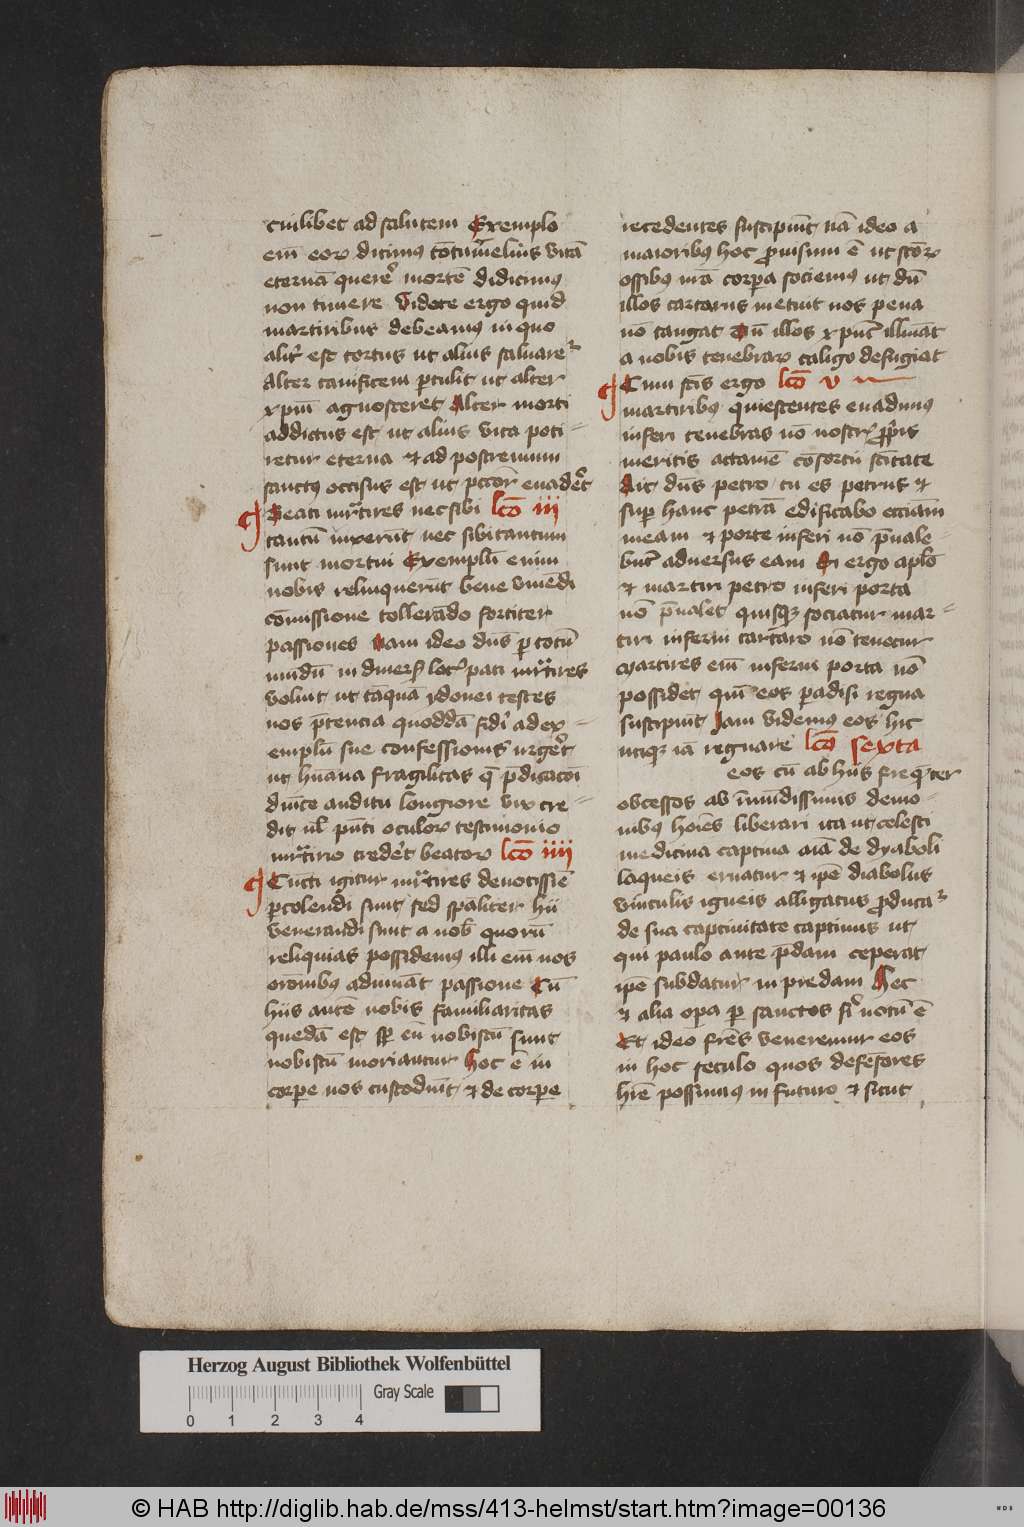 cuilibet ad salutem Exemplo
em̄ eoꝝ dicimꝰ
eternā querēꝰ mortē didicimꝰ
non timere Videte ergo quid
martiribus debeamꝰ in quo
alit᷑ est tortus ut alius saluare᷑
Alter carnificem ꝑtulit ut alter
xp̄m agnosceret Alter morti
addictus est ut alius vita poti-
retur eterna ⁊ ad postremum
sanctꝰ occisus est ut pctor̄ euadēt
Beati mr̄tires nec sibi lcō iii
tantū vixerūt nec sibi tantum
sunt mortui Exemplū enim
nobis relinquerūt bene viuēdi
cōmissione tollerādo fortiter
passiones Nam ideo dn̄s ꝑ totū
mūdū in diuers̄ loc̄ pati mr̄tires
voluit ut taquā ydonei testes
nos p̄sencia quoddā fidi᷑ ad ex-
emplū sue confessionis vrgēt
ut huana fragilitas q̄ p̄dicacōi
dn̄ice auditu longiore vix cre-
dit ul̄ pn̄ti oculoꝝ testimonio
mr̄tirio credēt beatoꝝ lcō iiii
Cuncti igitur mr̄tires deuotissiē
ꝑcolendi sunt sed spāliter hii
venerandi sunt a nob̄ quorū
reliquias possidemus illi em̄ nos
orōnibus adiuuāt passione Cū
hiis autē nobis familiaritas
quedā est sp̄ cū nobiscū sunt
nobiscū moriantur Hoc ē in
corꝑe nos custodiūt ⁊ de corꝑe
recedentes suscipiūt nā ideo a
maioribꝰ hoc ꝓuisum ē ut sctōꝝ
ossibꝰ nrā corꝑa sociemus ut dū
illos tartarus metuit nos pena
nō tangat Dū illos xp̄us illuīat
a nobis tenebraꝝ caligo defugiat
Cum sc̄tis ergo lcō v
martiribꝰ quiescentes euadimꝰ
inferi tenebras nō nostr̄ ꝓprijs
meritis attamē cōsorcii scītate
Ait dn̄s petro tu es petrus ⁊
suꝑ hanc petrā edificabo ecciām
meam ⁊ porte inferi nō p̄uale-
būt aduersus eam Si ergo aplō
⁊ martiri petro inferi porta
nō p̄ualet quisqꝫ sociatur mar-
tiri inferni tartaro nō tenetur
Martires em̄ inferni porta nō
possidet qm̄ eos ꝑadisi regna
suscipiūt Jam videmus eos hic
utiqꝫ iā regnare lcō sexta
eos cū ab hiis freq̄ter
obcessos ab īmūdissimis demo-
nibꝰ hoīes liberari ita ut celesti
medicina captiua aīā de dyaboli
laqueis eruatur ⁊ ipē diabolus
vinculis igneis alligatus ꝓduca᷑
de sua captiuitate captiuus ut
qui paulo ante p̄dam ceperat
ipē subdatur in predam Hec
⁊ alia oꝑa ꝑ sanctos fi᷑ notū ē
Et ideo frēs veneremur eos
in hoc seculo quos defēsores
hr̄e possimus in futuro ⁊ sicut
Herzog August Bibliothek Wolfenbüttel
Gray Scale
0 1 2 3 4
© HAB http://diglib.hab.de/mss/413-helmst/start.htm?image=00136